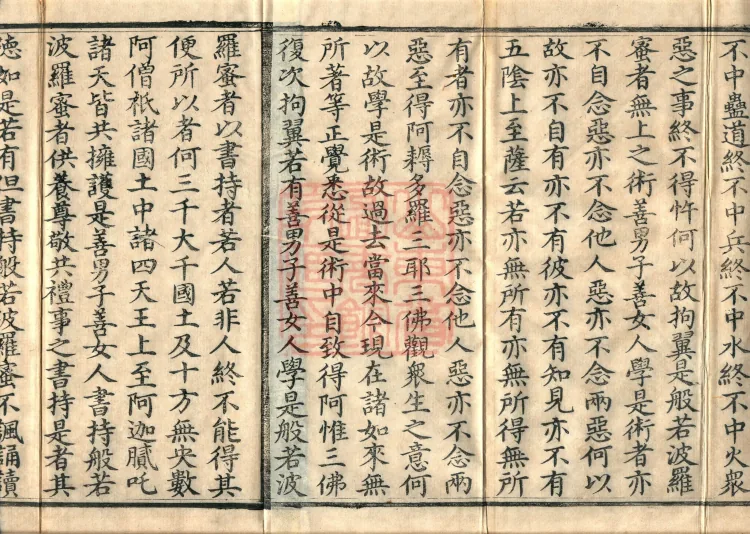 不中蠱道終不中兵終不中水終不中火衆
惡之事終不得忤何以故拘翼是般若波羅
蜜者無上之術善男子善女人學是術者亦
不自念惡亦不念他人惡亦不念兩惡何以
故亦不自有亦不有彼亦不有知見亦不有
五陰上至薩云若亦無所有亦無所得無所
有者亦不自念惡亦不念他人惡亦不念兩
惡至得阿耨多羅三耶三佛觀衆生之意何
以故學是術故過去當來今現在諸如來無
所著等正覺悉從是術中自致得阿惟三佛
復次拘翼若有善男子善女人學是般若波
羅蜜者以書持者若人若非人終不能得其
便所以者何三千大千國土及十方無央數
阿僧祇諸國土中諸四天王上至阿迦膩吒
諸天皆共擁護是善男子善女人書持般若
波羅蜜者供養尊敬共禮事之書持是者其
德如是若有但書持般若波羅蜜不諷誦讀